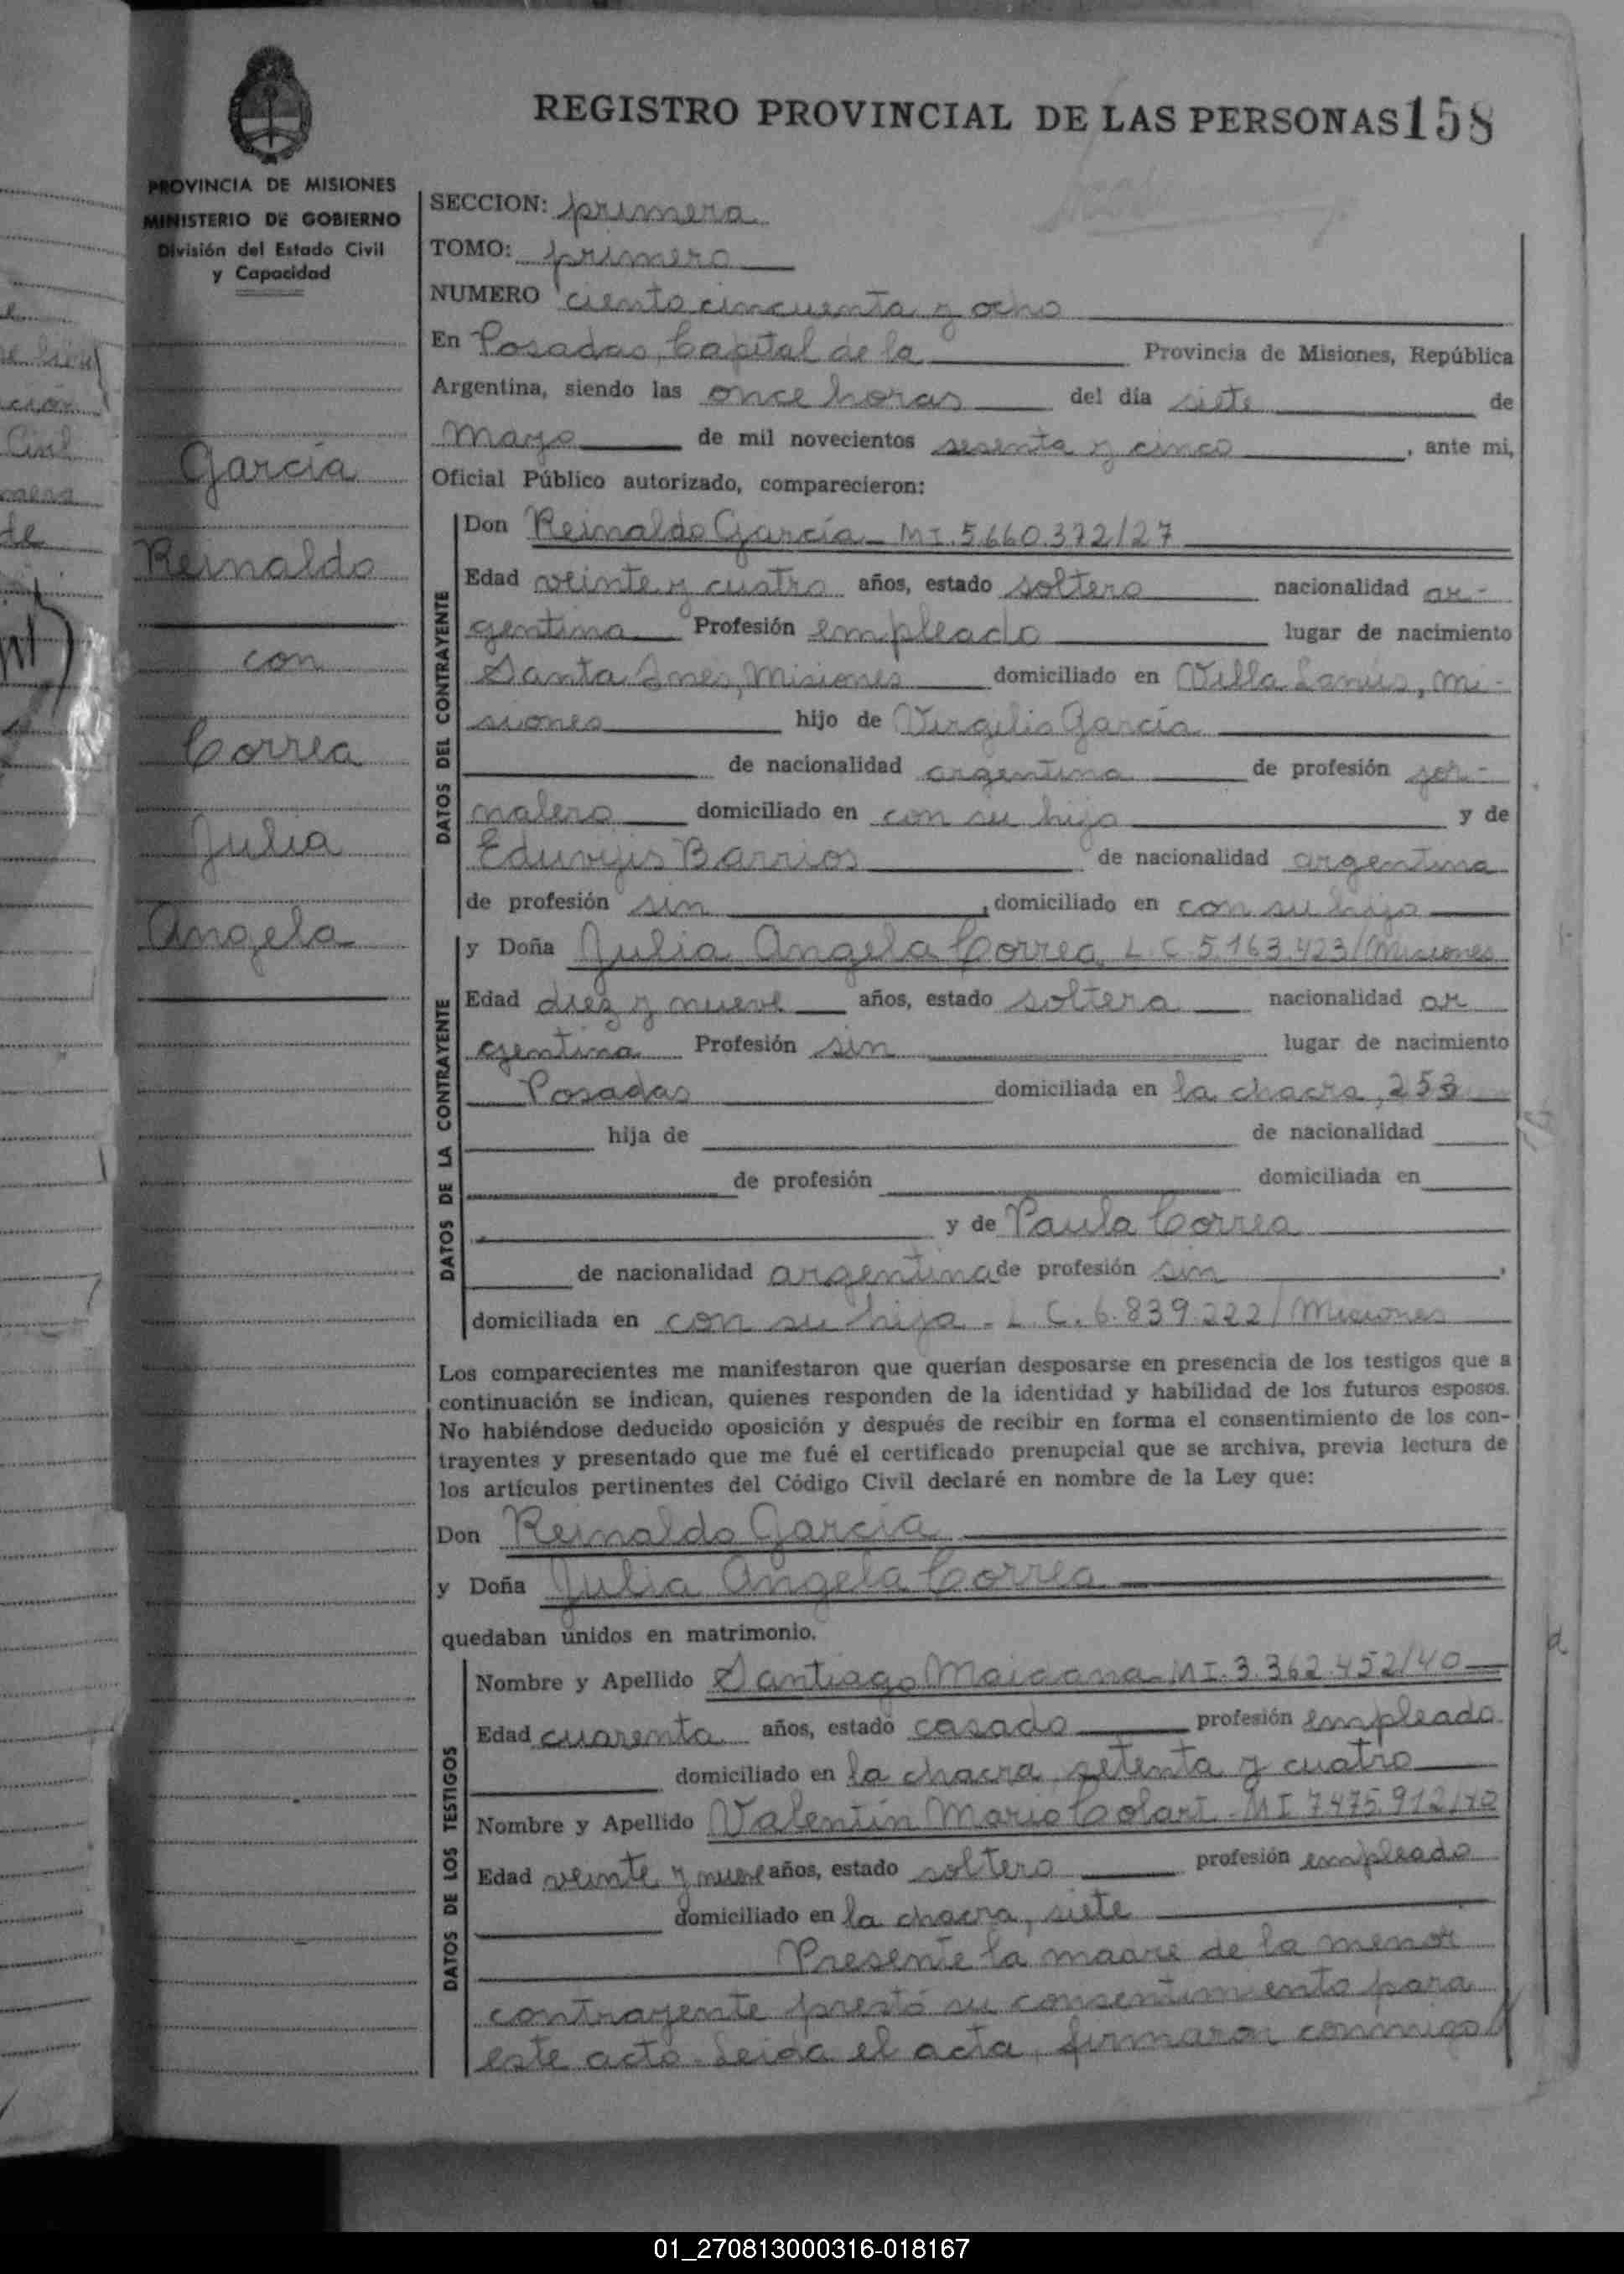 REGISTRO PROVINCIAL DE LAS PERSONAS 158
PROVINCIA DE MISIONES
MINISTERIO DE GOBIERNO
División del Estado Civil
y Capacidad
García
Reinaldo
con
Correa
Julia
Angela
SECCION: primera
TOMO: primero
NUMERO ciento cincuenta y ocho
En Posadas, Capital de la Provincia de Misiones, República
Argentina, siendo las once horas del día siete de
Mayo de mil novecientos sesenta y cinco, ante mi,
Oficial Público autorizado, comparecieron:
DATOS DEL CONTRAYENTE
Don Reinaldo García - MI. 5.660.372/27
Edad veinte y cuatro años, estado soltero nacionalidad ar-
gentina Profesión empleado lugar de nacimiento
Santa Ines, Misiones domiciliado en Villa Lanús, Mi-
siones hijo de Virgilio García
de nacionalidad argentina de profesión jor-
nalero domiciliado en con su hijo y de
Eduvijis Barrios de nacionalidad argentina
de profesión sin, domiciliado en con su hijo
DATOS DE LA CONTRAYENTE
y Doña Julia Angela Correa L.C. 5.163.423/Misiones
Edad diez y nueve años, estado soltera nacionalidad ar
gentina Profesión sin lugar de nacimiento
Posadas domiciliada en la chacra, 253
hija de de nacionalidad
de profesión domiciliada en
y de Paula Correa
de nacionalidad argentina de profesión sin,
domiciliada en con su hija - L.C. 6.839.222/Misiones
Los comparecientes me manifestaron que querían desposarse en presencia de los testigos que a
continuación se indican, quienes responden de la identidad y habilidad de los futuros esposos.
No habiéndose deducido oposición y después de recibir en forma el consentimiento de los con-
trayentes y presentado que me fué el certificado prenupcial que se archiva, previa lectura de
los artículos pertinentes del Código Civil declaré en nombre de la Ley que:
Don Reinaldo García
y Doña Julia Angela Correa
quedaban unidos en matrimonio.
DATOS DE LOS TESTIGOS
Nombre y Apellido Santiago Maidana - MI. 3.362.452/40
Edad cuarenta años, estado casado profesión empleado
domiciliado en la chacra, setenta y cuatro
Nombre y Apellido Valentín Mario Colart - MI 7.475.912/
Edad veinte y nueve años, estado soltero profesión empleado
domiciliado en la chacra, siete
Presente la madre de la menor
contrayente prestó su consentimiento para
este acto. Leida el acta, firmaron conmigo
01_270813000316-018167